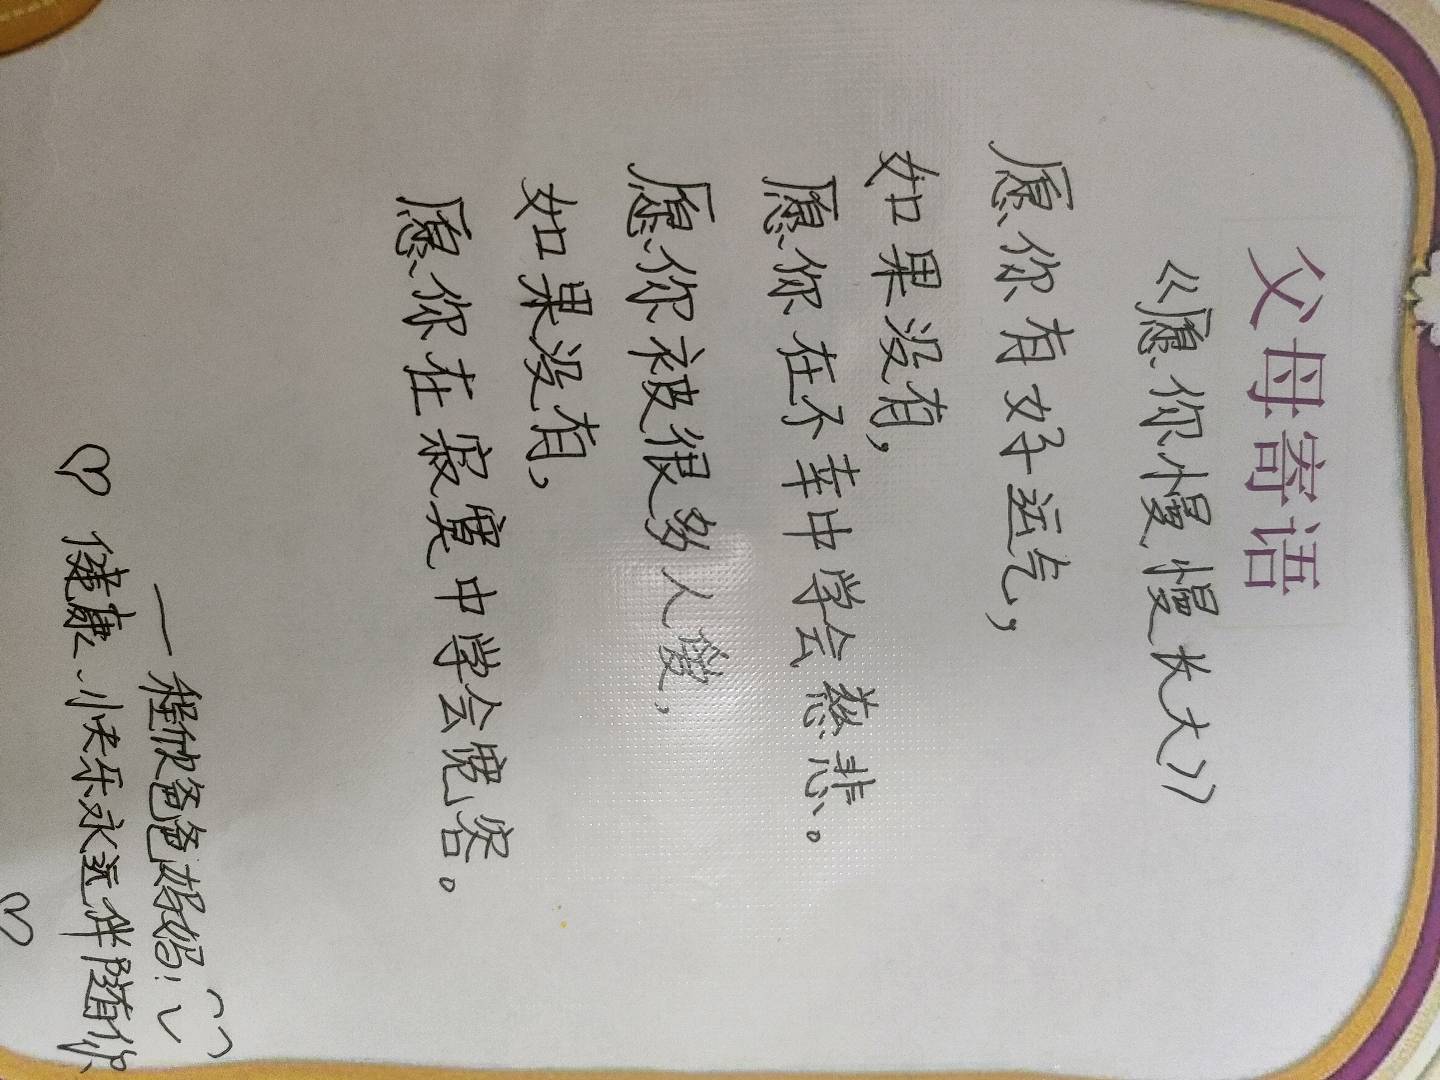 父母寄语
《愿你慢慢长大》
愿你有好运气，
如果没有，
愿你在不幸中学会慈悲。
愿你被很多人爱，
如果没有，
愿你在寂寞中学会宽容。
——程欣爸爸妈妈！
♡ 健康、快乐永远伴随你 ♡